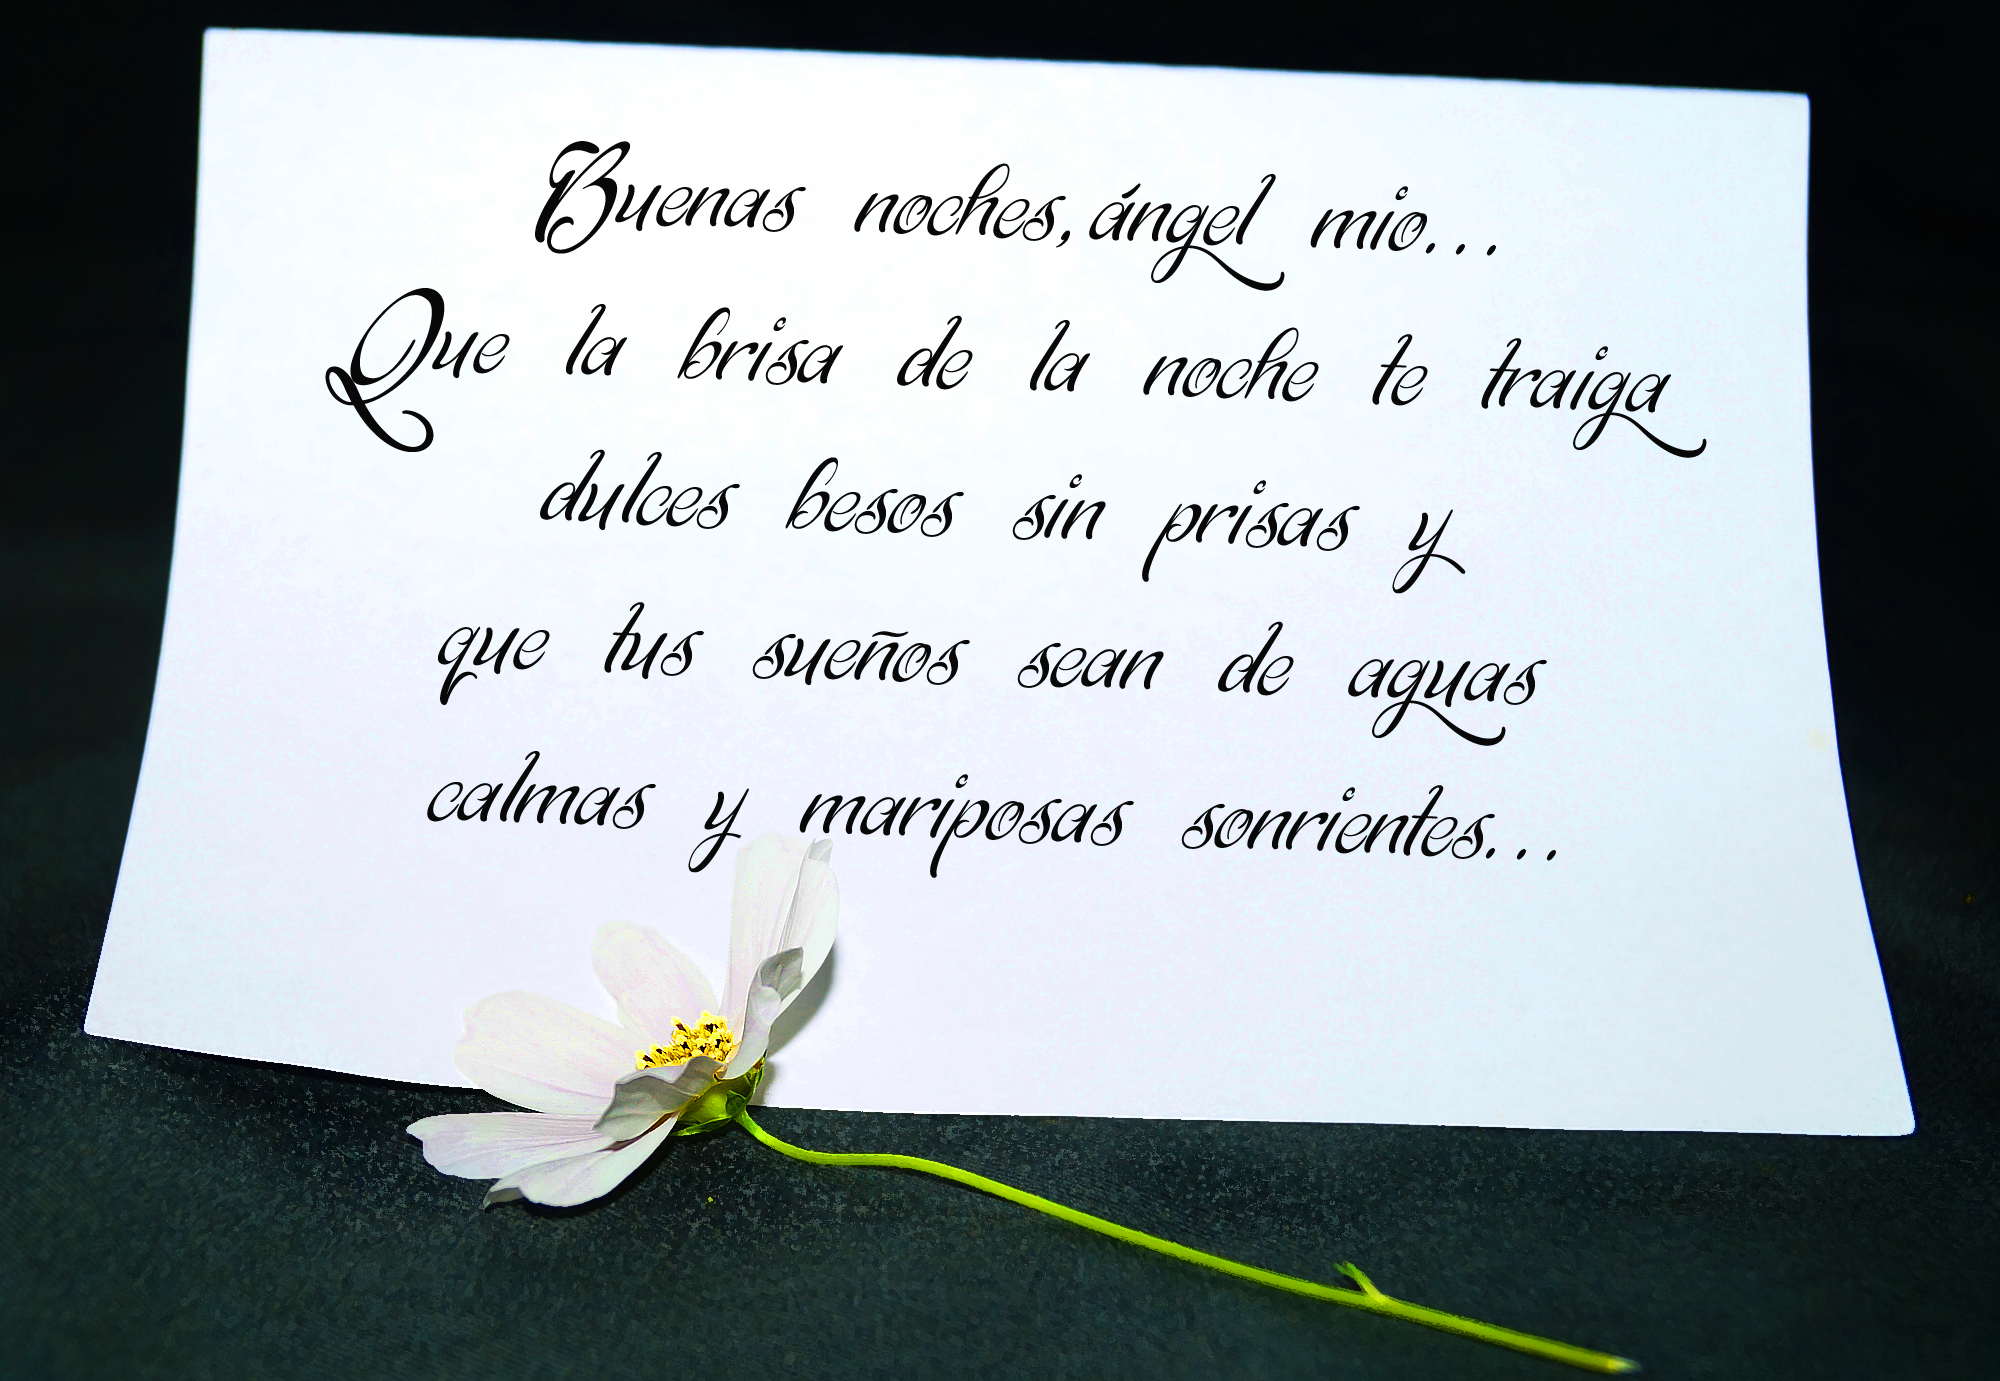 Buenas noches, ángel mio...
Que la brisa de la noche te traiga
dulces besos sin prisas y
que tus sueños sean de aguas
calmas y mariposas sonrientes...